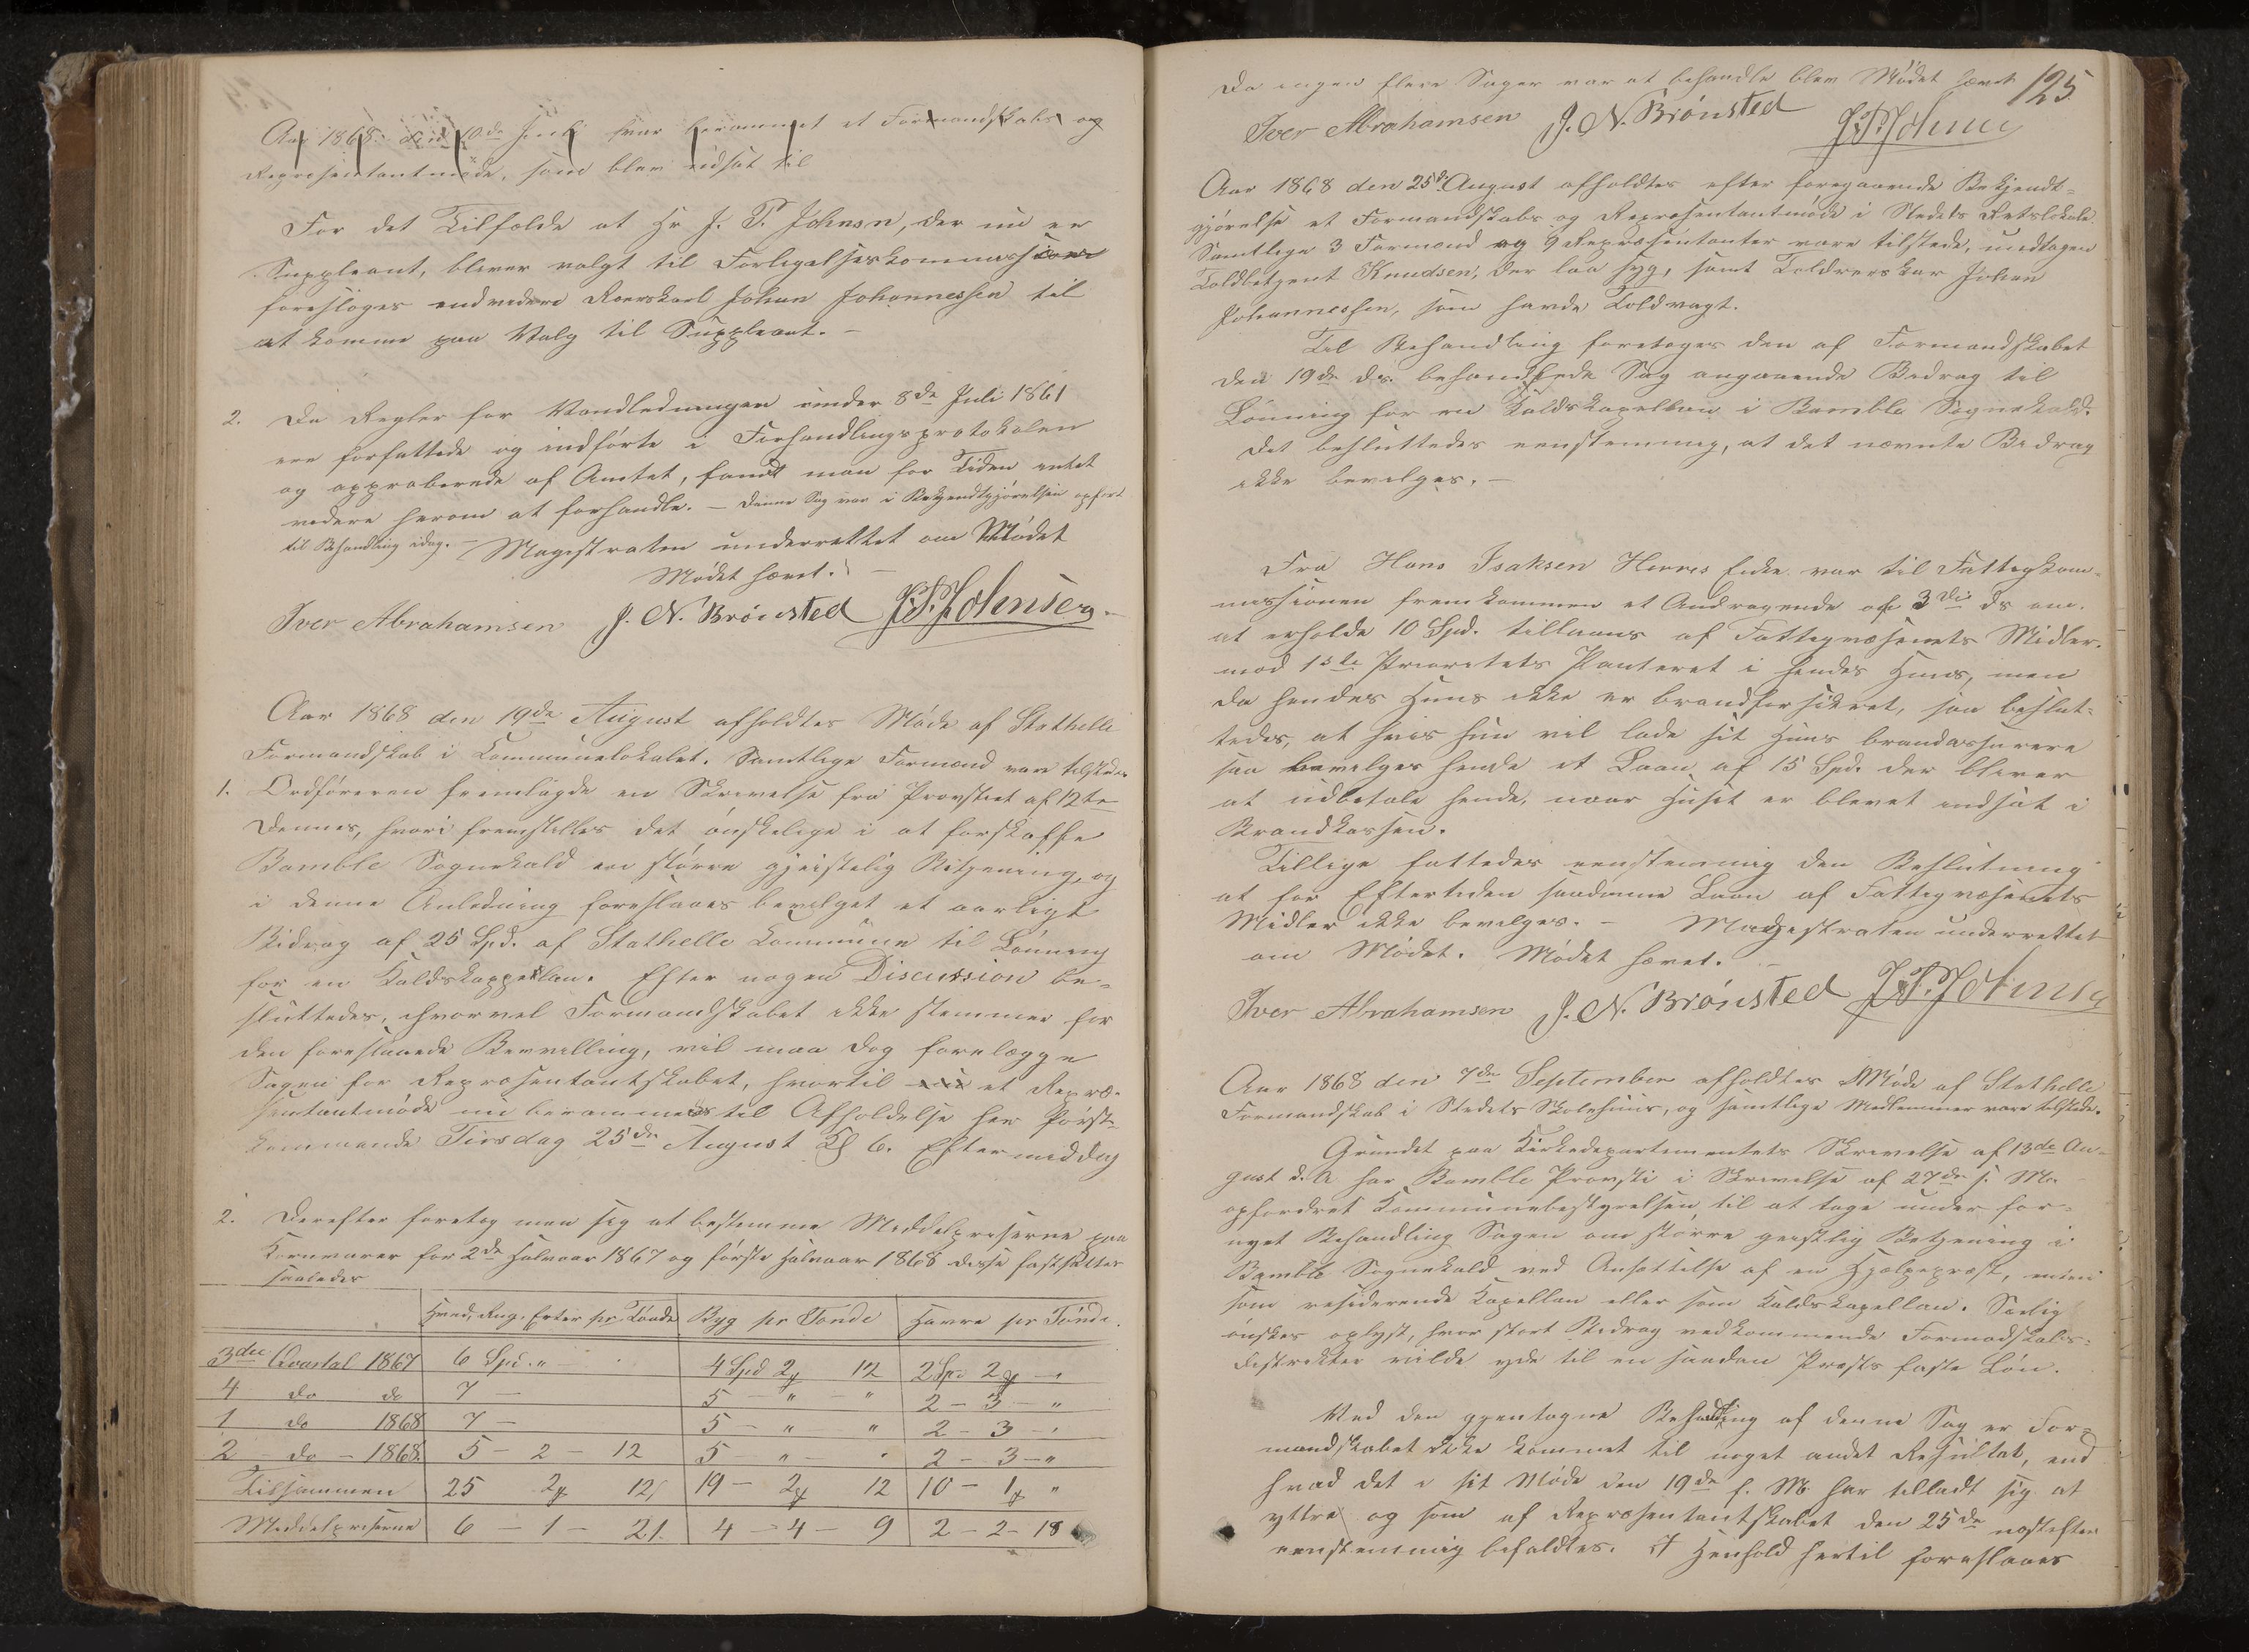 Aar 1868 den 10de Juli var berammet et Formandskabs og
Repræsentantmøde, som blev udsat til
For det Tilfælde at Hr J. P. Johnsn, der nu er
Suppleant, bliver valgt til Forligelseskommissær
foresloges endvidere Roerskarl Johan Johannessen til
at komme paa Valg til Suppleant. –
2. Da Regler for Vandledningen under 8de Juli 1861
ere forfattede og indførte i Forhandlingsprotokolen
og approberede af Amtet, fandt man for Tiden intet
videre herom at forhandle. – Denne Sag var i Bekjendtgjørelsen opført
til Behandling idag. – Magistraten underrettet om Mødet
Mødet hævet. –
Iver Abrahamsen J. N. Brønsted J.P. Johnsen
Aar 1868 den 19de August afholdtes Møde af Stathelle
Formandskab i Kommunelokalet. Samtlige Formænd vare tilstede.
1. Ordføreren fremlagde en Skrivelse fra Provstiet af 12te
dennes, hvori fremstilles det ønskelige i at forskaffe
Bamble Sognekald en større gjeistelig Betjening, og
i denne Anledning foreslaaes bevilget et aarligt
Bidrag af 25 Spd. af Stathelle Kommune til Lønning
for en Kaldskappellan. Efter nogen Discussion be-
sluttedes, hvorvel Formandskabet ikke stemmer for
den foreslaaede Bevilling, vil man dog forelægge
Sagen for Repræsentantskabet, hvortil et Repræ-
sentantmøde nu berammes til Afholdelse her først-
kommende Tirsdag 25de August Kl 6. Eftermiddag
2. Derefter foretog man sig at bestemme Middelpriserne paa
Kornvarer for 2de Halvaar 1867 og første Halvaar 1868 disse fastsattes
saaledes
Hved, Rug, Erter pr Tønde Byg pr Tønde Havre pr Tønde.
3die Qvartal 1867 6 Spd. " 4 Spd 2 12 2 Spd 2 – "
4 do do 7 – 5 – " – " 2 – 3 – "
1 do 1868 7 – 5 – " – " 2 – 3 – "
2 – do – 1868. 5 – 2 – 12 5 – " – " 2 – 3 – "
Tilsammen 25 2 12 19 – 2 12 10 – 1 "
Middelpriserne 6 – 1 – 21. 4 – 4 – 9 2 – 2 – 18
125
Da ingen flere Sager var at behandle blev Mødet hævet
Iver Abrahamsen J. N. Brønsted J.P. Johnsen
Aar 1868 den 25de August afholdtes efter foregaaende Bekjendt-
gjørelse et Formandskabs og Repræsentantmøde i Stedets Retslokale.
Samtlige 3 Formænd og 9 Repræsentanter vare tilstede, undtagen
Toldbetjent Knudsen, der laa syg, samt Toldroerskar Johan
Johannessen, som havde Toldvagt.
Til Behandling foretoges den af Formandskabet
den 19de ds. behandlede Sag angaaende Bidrag til
Lønning for en Kaldskapellan i Bamble Sognekald.
Det besluttedes eenstemmig, at det nævnte Bidrag
ikke bevilges. –
Fra Hans Isaksen Herres Enke var til Fattigkom-
missionen fremkommen et Andragende af 3die ds om
at erholde 10 Spd. tillaans af Fattigvæsenets Midler
mod 1ste Prioritets Panteret i hendes Huus, men
da hendes Huus ikke er brandforsikret, saa beslut-
tedes, at hvis hun vil lade sit Huus brandassurere
saa bevilges hende et Laan af 15 Spd. der bliver
at udbetale hende, naar Huset er blevet indsat i
Brandkassen.
Tillige fattedes eenstemmig den Beslutning
at for Eftertiden saadanne Laan af Fattigvæsenets
Midler ikke bevilges. – Magistraten underrettet
om Mødet. Mødet hævet. –
Iver Abrahamsen J. N. Brønsted J.P. Johnsen
Aar 1868 den 7de September afholdtes Møde af Stathelle
Formandskab i Stedets Skolehuus, og samtlige Medlemmer vare tilstede.
Grundet paa Kirkedepartementets Skrivelse af 13de Au-
gust d. A har Bamble Provsti i Skrivelse af 27de s. M.
opfordret Kommunebestyrelsen til at tage under for-
nyet Behandling Sagen om større geistlig Betjening i
Bamble Sognekald ved Ansættelse af en Hjælpepræst, enten
som residerende Kapellan eller som Kaldskapellan. Særlig
ønskes oplyst, hvor stort Bidrag vedkommende Formandskabs-
distrikter vilde yde til en saadan Præsts faste Løn.
Ved den gjentagne Behandling af denne Sag er For-
mandskabet ikke kommet til noget andet Resultat, end
hvad det i sit Møde den 19de f. M. har tilladt sig at
yttre og som af Repræsentantskabet den 25de næstefter
eenstemmig befaldtes. I Henhold hertil foreslaaes